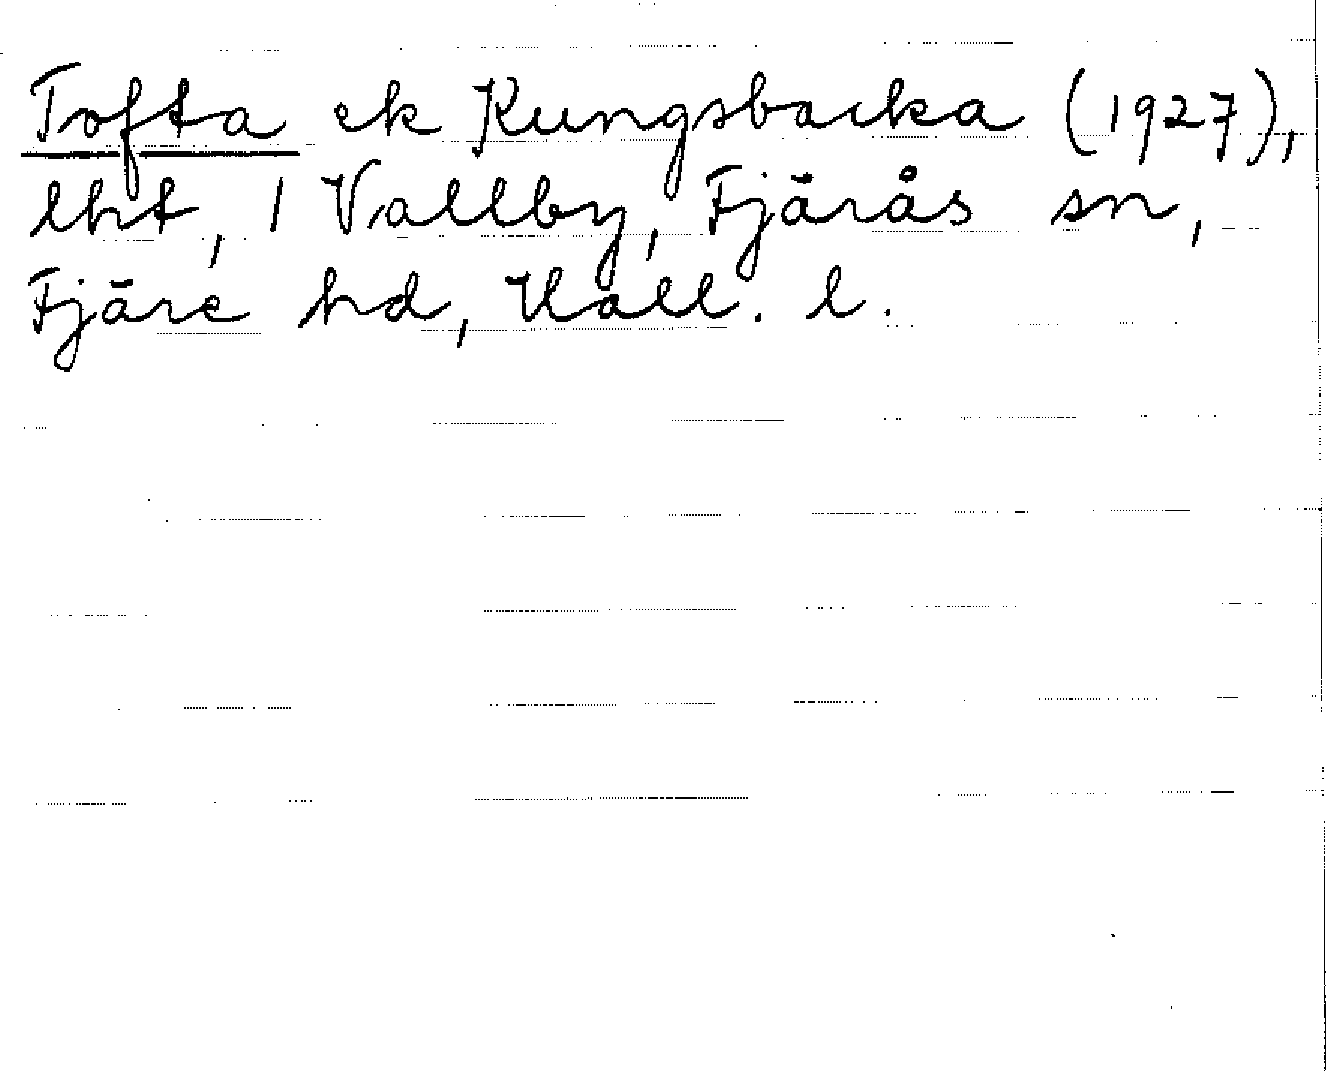 Tofta ek Kungsbacka (1927),
lht, 1 Vallby, Fjärås sn,
Fjäre hd, Hall. l.